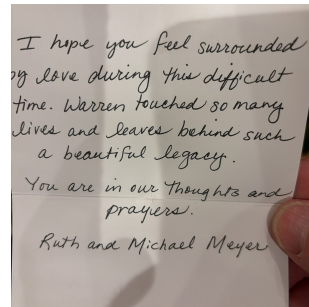 I hope you feel surrounded
by love during this difficult
time. Warren touched so many
lives and leaves behind such
a beautiful legacy.
You are in our thoughts and
prayers.
Ruth and Michael Meyer